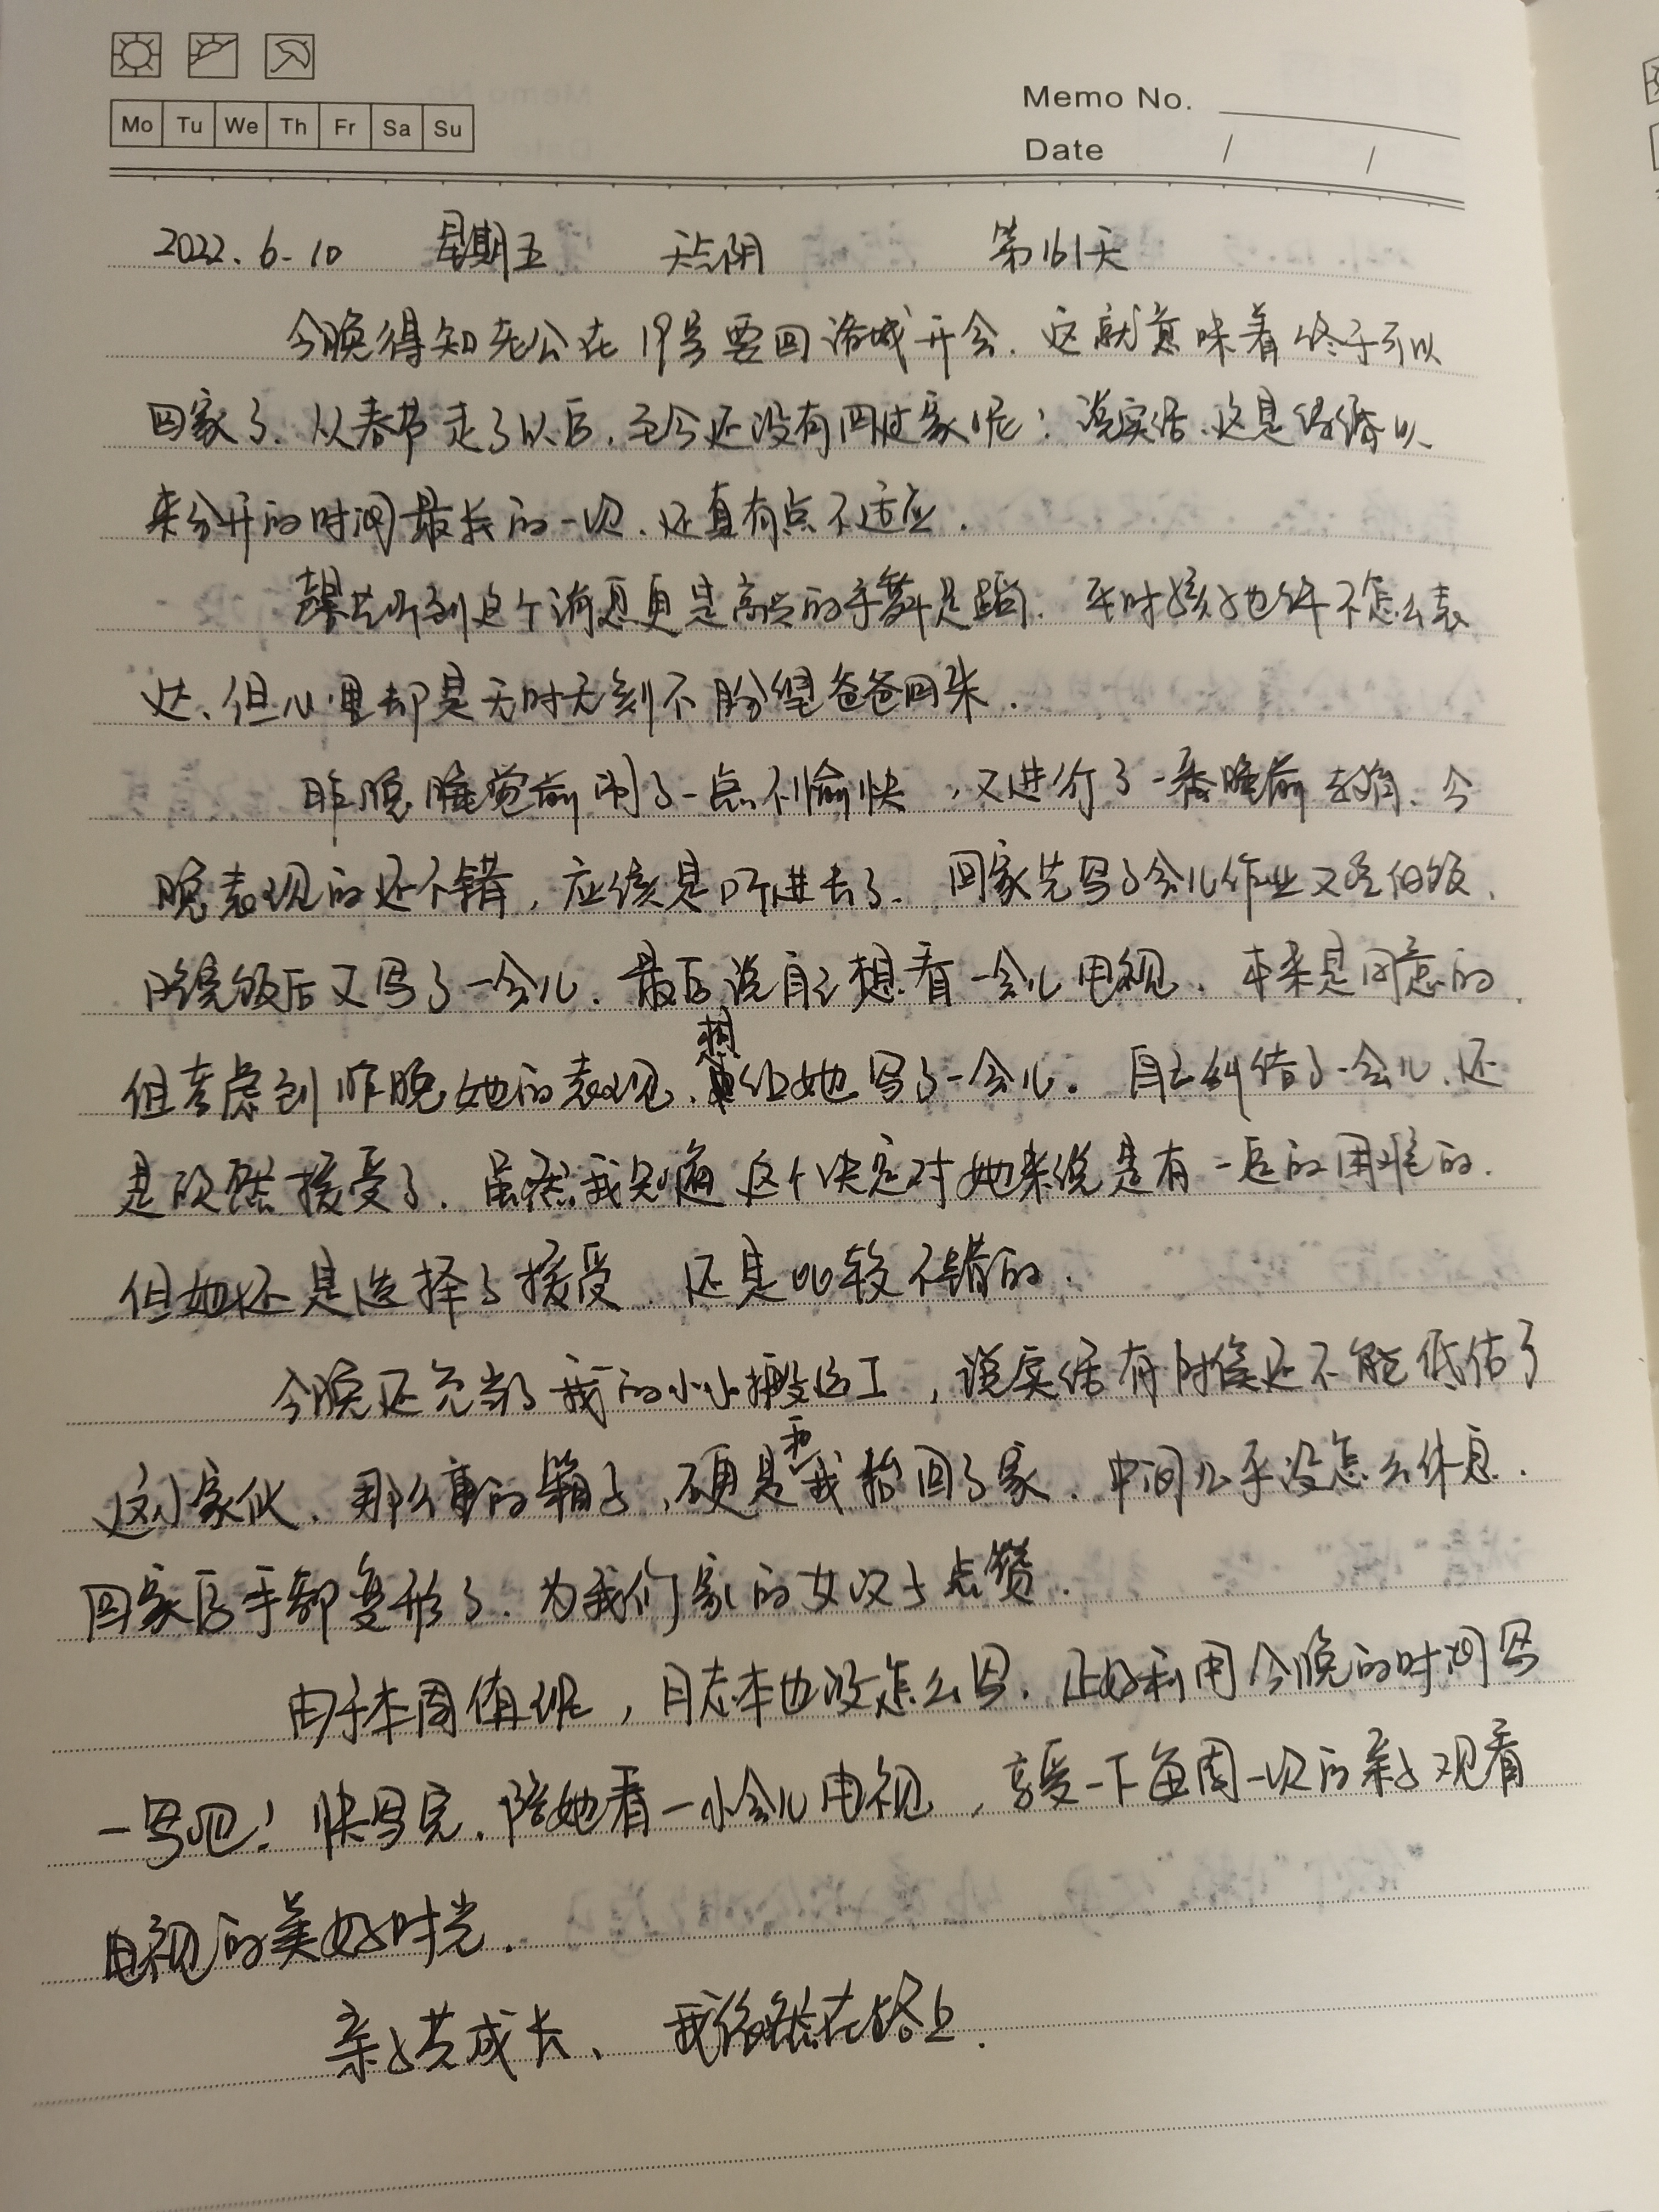 Mo Tu We Th Fr Sa Su
Memo No.
Date / /
2022.6.10 星期五 阴 第161天
今晚得知老公在19号要回诸城开会.这就意味着终于可以
回家了.从春节走了以后,至今还没有回过家呢!说实话.这是结婚以
来分开的时间最长的一次.还真有点不适应.
听到这个消息更是高兴的手舞足蹈.平时孩子也许不怎么表
达、但心里却是无时无刻不盼望爸爸回来.
昨晚睡觉前闹了一点不愉快,又进行了一番睡前教育、今
晚表现的还不错,应该是听进去了.回家先写了会儿作业又吃的饭.
吃完饭后又写了一会儿.最后说自己想看一会儿电视.本来是同意的.
但考虑到昨晚她的表现、想让她写了一会儿.自己纠结了一会儿.还
是欣然接受了.虽然我知道这个决定对她来说是有一定的困难的.
但她还是选择了接受.还是比较不错的.
今晚还充当了我的小小搬运工,说实话有时候还不能低估了
这小家伙、那么重的箱子,硬是和我抬回了家.中间几乎没怎么休息.
回家后手都变形了.为我们家的女汉子点赞.
由于本周值班,日志本也没怎么写.正好利用今晚的时间写
一写吧!快写完.陪她看一小会儿电视,享受一下每周一次的亲子观看
电视的美好时光.
亲子共成长、我依然在路上.